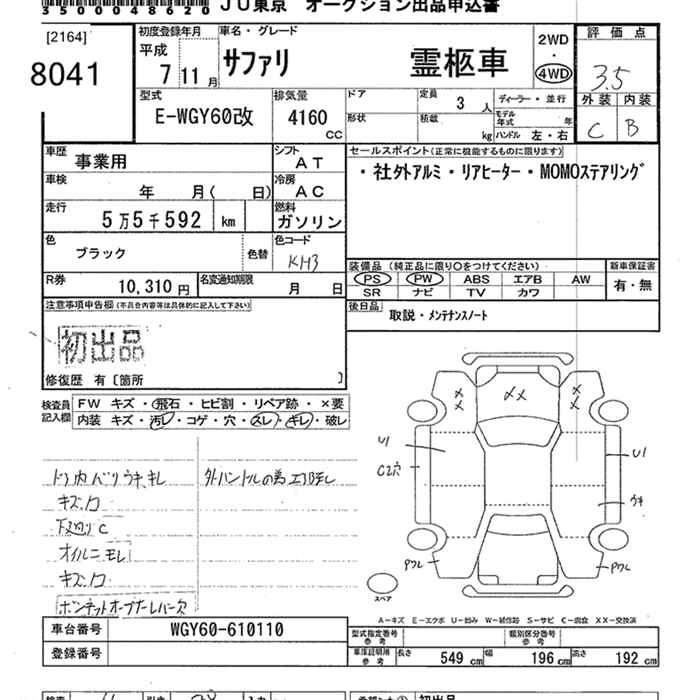 3500048620 JU東京 オークション出品申込書
[2164]
8041
初度登録年月
平成
7 11月
車名・グレード
サファリ 霊柩車
2WD
・
4WD
評価点
3.5
外装 内装
C B
型式
E-WGY60改
排気量
4160
CC
ドア
形状
定員
3 人
積載
kg
ディーラー・並行
モデル年式 年
ハンドル 左・右
車歴
事業用
シフト
AT
車検
年 月( 日)
冷房
AC
走行
5万5千592 km
燃料
ガソリン
色
ブラック
色替
色コード
KH3
R券
10,310 円
名変通知期限
月 日
セールスポイント(正常に機能するものに限ります)
・社外アルミ・リアヒーター・MOMOステアリング
装備品 (純正品に限り○をつけてください)
PS PW ABS エアB AW
SR ナビ TV カワ
新車保証書
有・無
後日品
取説・メンテナンスノート
注意事項申告欄(不具合内容等は具体的に記入して下さい)
初出品
修復歴 有〔箇所 〕
検査員記入欄
FW キズ・飛石・ヒビ割・リペア跡・×要
内装 キズ・汚レ・コゲ・穴・スレ・キレ・破レ
キズ
下廻り C
オイルニモレ
キズ
U1
C2穴
U1
ウキ
スペア
A-キズ E-エクボ U-凹み W-補修跡 S-サビ C-腐食 XX-交換済
車台番号 WGY60-610110
登録番号
型式指定番号 参考
類別区分番号 参考
車庫証明用 参考
長さ 549 cm 幅 196 cm 高さ 192 cm
初出品